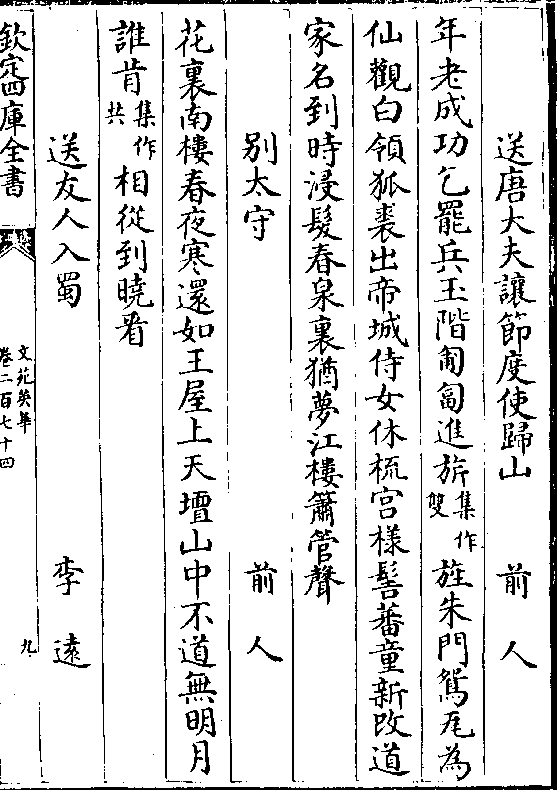 送唐大夫讓節度使歸山 前人
年老成功乞罷兵玉階匍匐進旂集作雙旌朱門鴛瓦為
仙觀白領狐裘出帝城侍女休梳宮様髻蕃童新改道
家名到時浸髮春泉裏猶夢江樓簫管聲
别太守 前人
花裏南樓春夜寒還如王屋上天壇山中不道無明月
誰肯集作共相從到曉看
送友人入蜀 李遠
欽定四庫全書
文苑英華
卷二百七十四
九